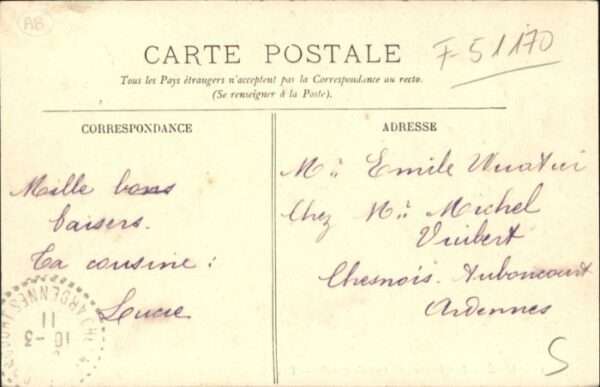 AB
CARTE POSTALE
F-51170
Tous les Pays étrangers n'acceptent pas la Correspondance au recto.
(Se renseigner à la Poste).
CORRESPONDANCE
ADRESSE
Mille bons
baisers.
Ta cousine :
Lucie
Mr Emile
Chez Mr Michel
Vuibert
Chesnois-Auboncourt
Ardennes
ARDENNES
11
10-3
S